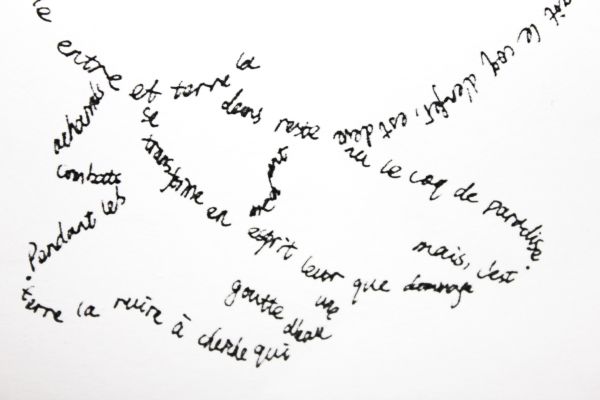 entre et terre la
dans reste
achamés
combats
Pendant les
se transforme en
esprit leur que dommage
mais, c'est
le coq d'enfer, est deve
nu le coq de paradise.
une
goutte d'eau
terre la ruire à cherche qui